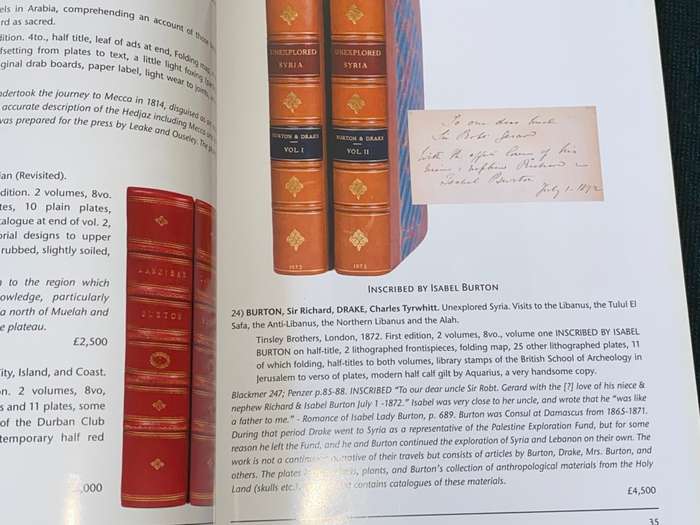 els in Arabia, comprehending an account of those
rd as sacred.
dition. 4to., half title, leaf of ads at end, Folding map,
fsetting from plates to text, a little light foxing
ginal drab boards, paper label, light wear to joints,
ndertook the journey to Mecca in 1814, disguised as
accurate description of the Hedjaz including Mecca
was prepared for the press by Leake and Ouseley. The
ian (Revisited).
edition. 2 volumes, 8vo.
tes, 10 plain plates,
talogue at end of vol. 2,
orial designs to upper
rubbed, slightly soiled,
n to the region which
owledge, particularly
a north of Muelah and
e plateau.
£2,500
City, Island, and Coast.
on. 2 volumes, 8vo,
s and 11 plates, some
of the Durban Club
temporary half red
,000
ZANZIBAR
BURTON
UNEXPLORED
SYRIA
BURTON & DRAKE
VOL. I
1872
UNEXPLORED
SYRIA
BURTON & DRAKE
VOL. II
1872
To our dear Uncle
Sir Robt. Gerard
With the
love of his
niece & nephew Richard &
Isabel Burton
July 1. 1872
INSCRIBED BY ISABEL BURTON
24) BURTON, Sir Richard, DRAKE, Charles Tyrwhitt. Unexplored Syria. Visits to the Libanus, the Tulul El
Safa, the Anti-Libanus, the Northern Libanus and the Alah.
Tinsley Brothers, London, 1872. First edition, 2 volumes, 8vo., volume one INSCRIBED BY ISABEL
BURTON on half-title, 2 lithographed frontispieces, folding map, 25 other lithographed plates, 11
of which folding, half-titles to both volumes, library stamps of the British School of Archeology in
Jerusalem to verso of plates, modern half calf gilt by Aquarius, a very handsome copy.
Blackmer 247; Penzer p.85-88. INSCRIBED "To our dear uncle Sir Robt. Gerard with the [?] love of his niece &
nephew Richard & Isabel Burton July 1 -1872." Isabel was very close to her uncle, and wrote that he "was like
a father to me." - Romance of Isabel Lady Burton, p. 689. Burton was Consul at Damascus from 1865-1871.
During that period Drake went to Syria as a representative of the Palestine Exploration Fund, but for some
reason he left the Fund, and he and Burton continued the exploration of Syria and Lebanon on their own. The
work is not a narrative of their travels but consists of articles by Burton, Drake, Mrs. Burton, and
others. The plates plants, and Burton's collection of anthropological materials from the Holy
Land (skulls etc.) contains catalogues of these materials.
£4,500
35